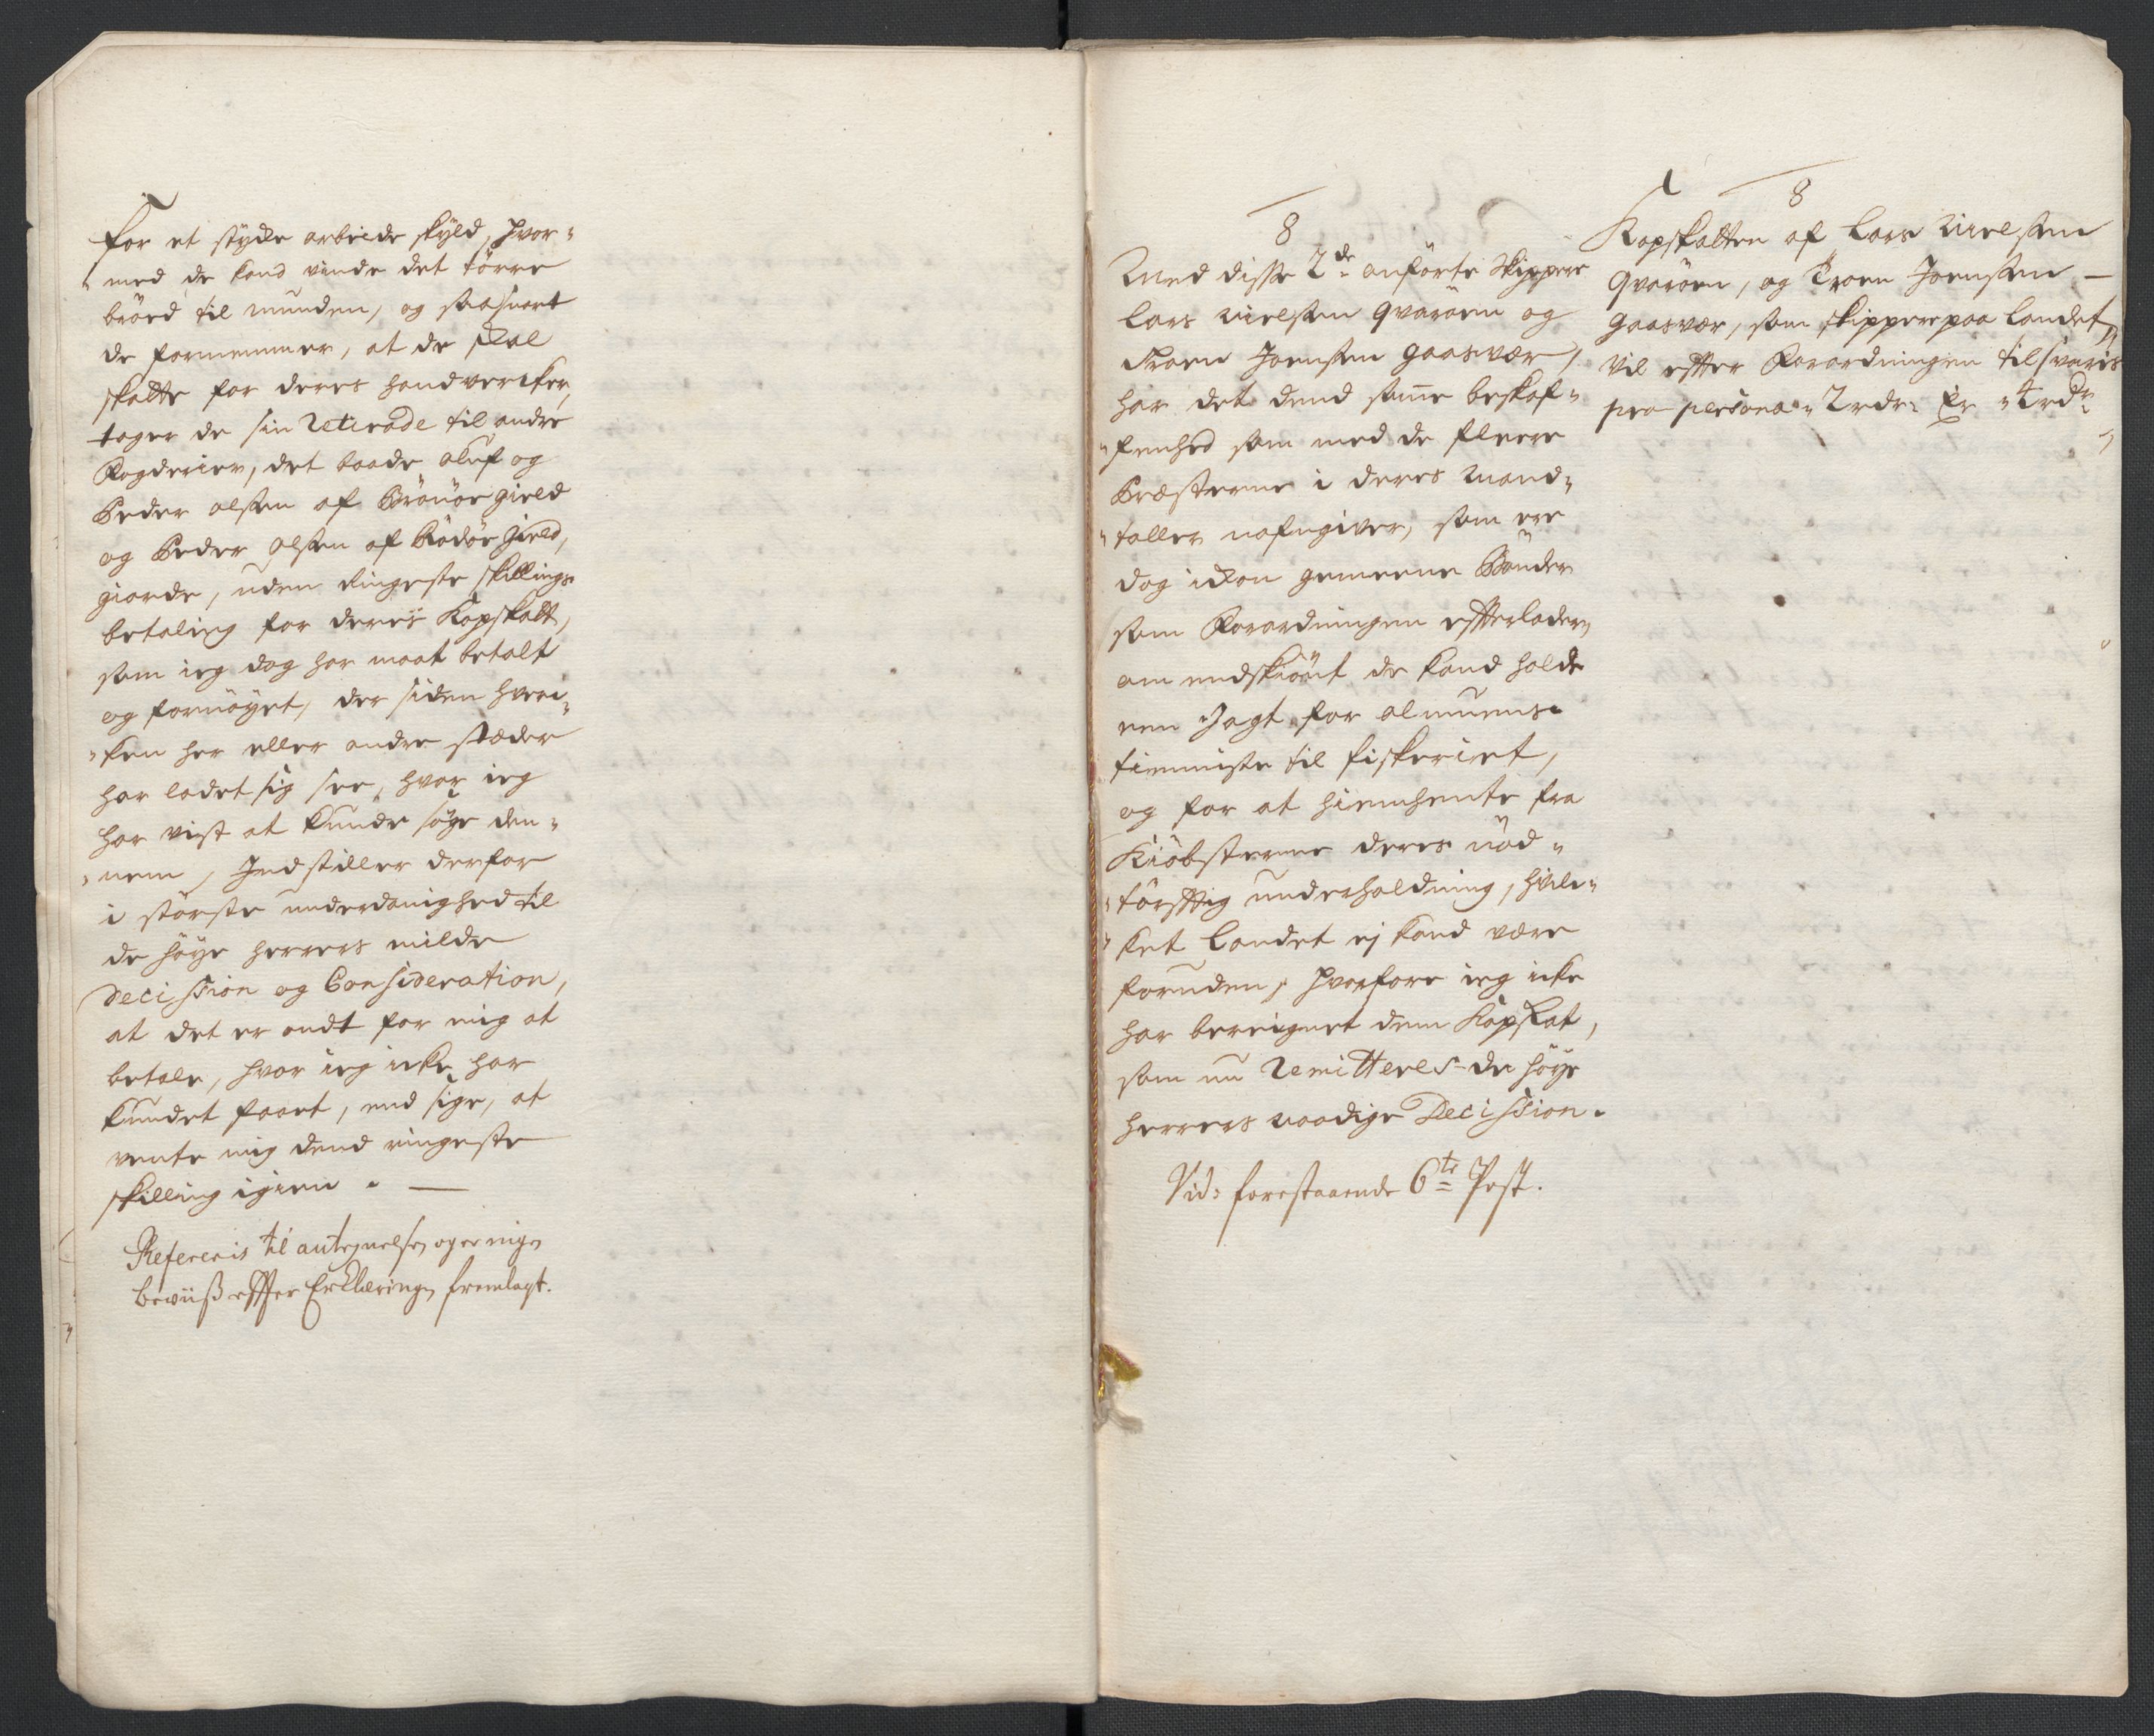 for et stycke arbeide skyld, hvor-
med de kand vinde det törre
bröed til munden, og saasnart
de fornemmer, at de skal
skatte for deres handvercker,
tager de sin Retirade til andre
Fogderier, det baade oluf og
Peder olssen af Brönöe gield
og Peder olssen af Rödöe gield,
giorde, uden ringeste skillings
betaling for deris Kopskatt,
som ieg dog har maat betalt
og fornöyet, der siden hverc-
ken her eller andre stæder
har ladet sig see, hvor ieg
har vist at kunde söge den-
nem, Indstiller derfor
i störste underdanighed til
de höye herrers milde
Decission og Consideration,
at det er ondt for mig at
betale, hvor ieg icke har
kundet faaet, end sige, at
vente mig dend ringeste
skilling igien. —
Refereris til antegnelsen og er ingen
beviiß effter Erklæringen fremlagt.
8
Med disse 2de anförte Skippere
Lars Nielssen Qvaröen og
Troen Joenssen gaasvær,
har det dend samme beskaf-
fenhed som med de fleere
Præsterne i deres Mand-
taller nafngiver, som ere
dog ickon gemeene Bönder
som Forordningen efterlader,
om endskiönt de kand holde
een Jagt for almuens
tienniste til fiskeriet,
og for at hiemhente fra
Kiöbsterne deres nöd-
törfftig underholdning, hvilc-
ket Landet ej kand være
foruden, hvorfore ieg icke
har bereignet dem Kopskat,
som nu Remitteres de höye
herrers naadige Decission.
Vid: forestaaende 6te Post.
8
Kopskatten af Lars Nielssen
Qvaröen, og Troen Joenssen —
Gaasvær, som skippere paa Landet,
vil effter Forordningen tilsvaris
pro persona 2 rdr. Er 4 rdr